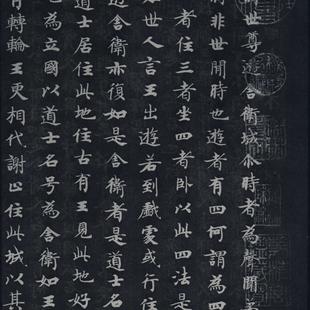 世尊遊舍衛城尒時者為聲聞
非世間時也遊者有四何謂為四
者住三者坐四者臥以此四法是
世人言王出遊若到戲處或行住
遊舍衛亦復如是舍衛者是道士名
道士居住此地往古有王見此地好
為立國以道士名号為舍衛如王
轉輪王更相代謝止住此城以其